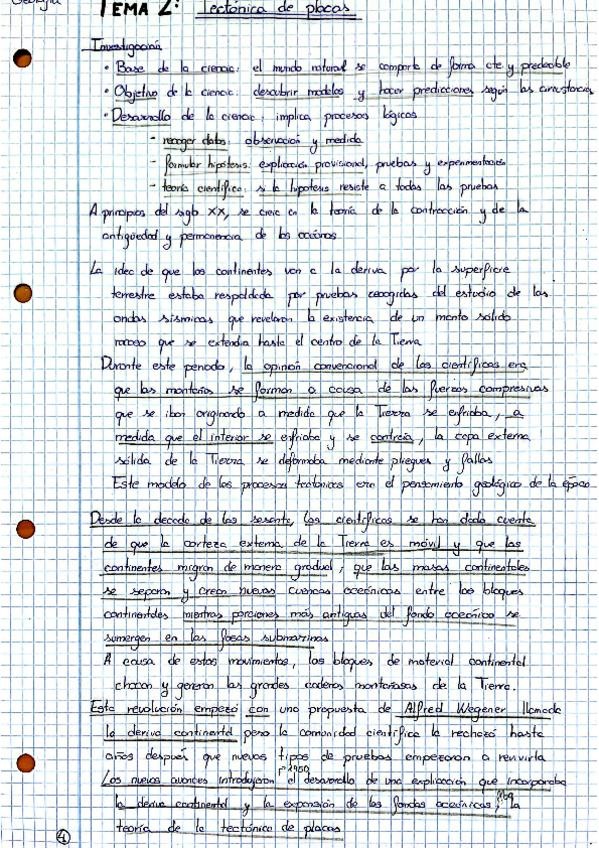 Geología
TEMA 2: Tectónica de placas
Investigación
• Base de la ciencia: el mundo natural se comporta de forma cte y predecible
• Objetivo de la ciencia: descubrir modelos y hacer predicciones según las circunstancias
• Desarrollo de la ciencia: implica procesos lógicos
- recoger datos: observación y medida
- formular hipótesis: explicación provisional, pruebas y experimentación
- teoría científica: si la hipótesis resiste a todas las pruebas
A principios del siglo XX, se creía en la teoría de la contracción y de la
antigüedad y permanencia de los océanos
La idea de que los continentes van a la deriva por la superficie
terrestre estaba respaldada por pruebas recogidas del estudio de las
ondas sísmicas que revelaron la existencia de un manto sólido
rocoso que se extendía hasta el centro de la Tierra
Durante este periodo, la opinión convencional de los científicos era
que las montañas se forman a causa de las fuerzas compresivas
que se iban originando a medida que la Tierra se enfriaba, a
medida que el interior se enfriaba y se contraía, la capa externa
sólida de la Tierra se deformaba mediante pliegues y fallas
Este modelo de los procesos tectónicos era el pensamiento geológico de la época
Desde la decada de los sesenta, los científicos se han dado cuenta
de que la corteza externa de la Tierra es móvil y que los
continentes migran de manera gradual, que las masas continentales
se separan y crean nuevas cuencas oceánicas entre los bloques
continentales mientras porciones más antiguas del fondo oceánico se
sumergen en las fosas submarinas
A causa de estos movimientos, los bloques de material continental
chocan y generan las grandes cadenas montañosas de la Tierra.
Esta revolución empezó con una propuesta de Alfred Wegener llamada
la deriva continental pero la comunidad científica la rechazó hasta
años después que nuevos tipos de pruebas empezaron a revivirla
Los nuevos avances introdujeron 1950 el desarrollo de una explicación que incorporaba
la deriva continental y la expansión de los fondos oceánicos, la
teoría de la tectónica de placas